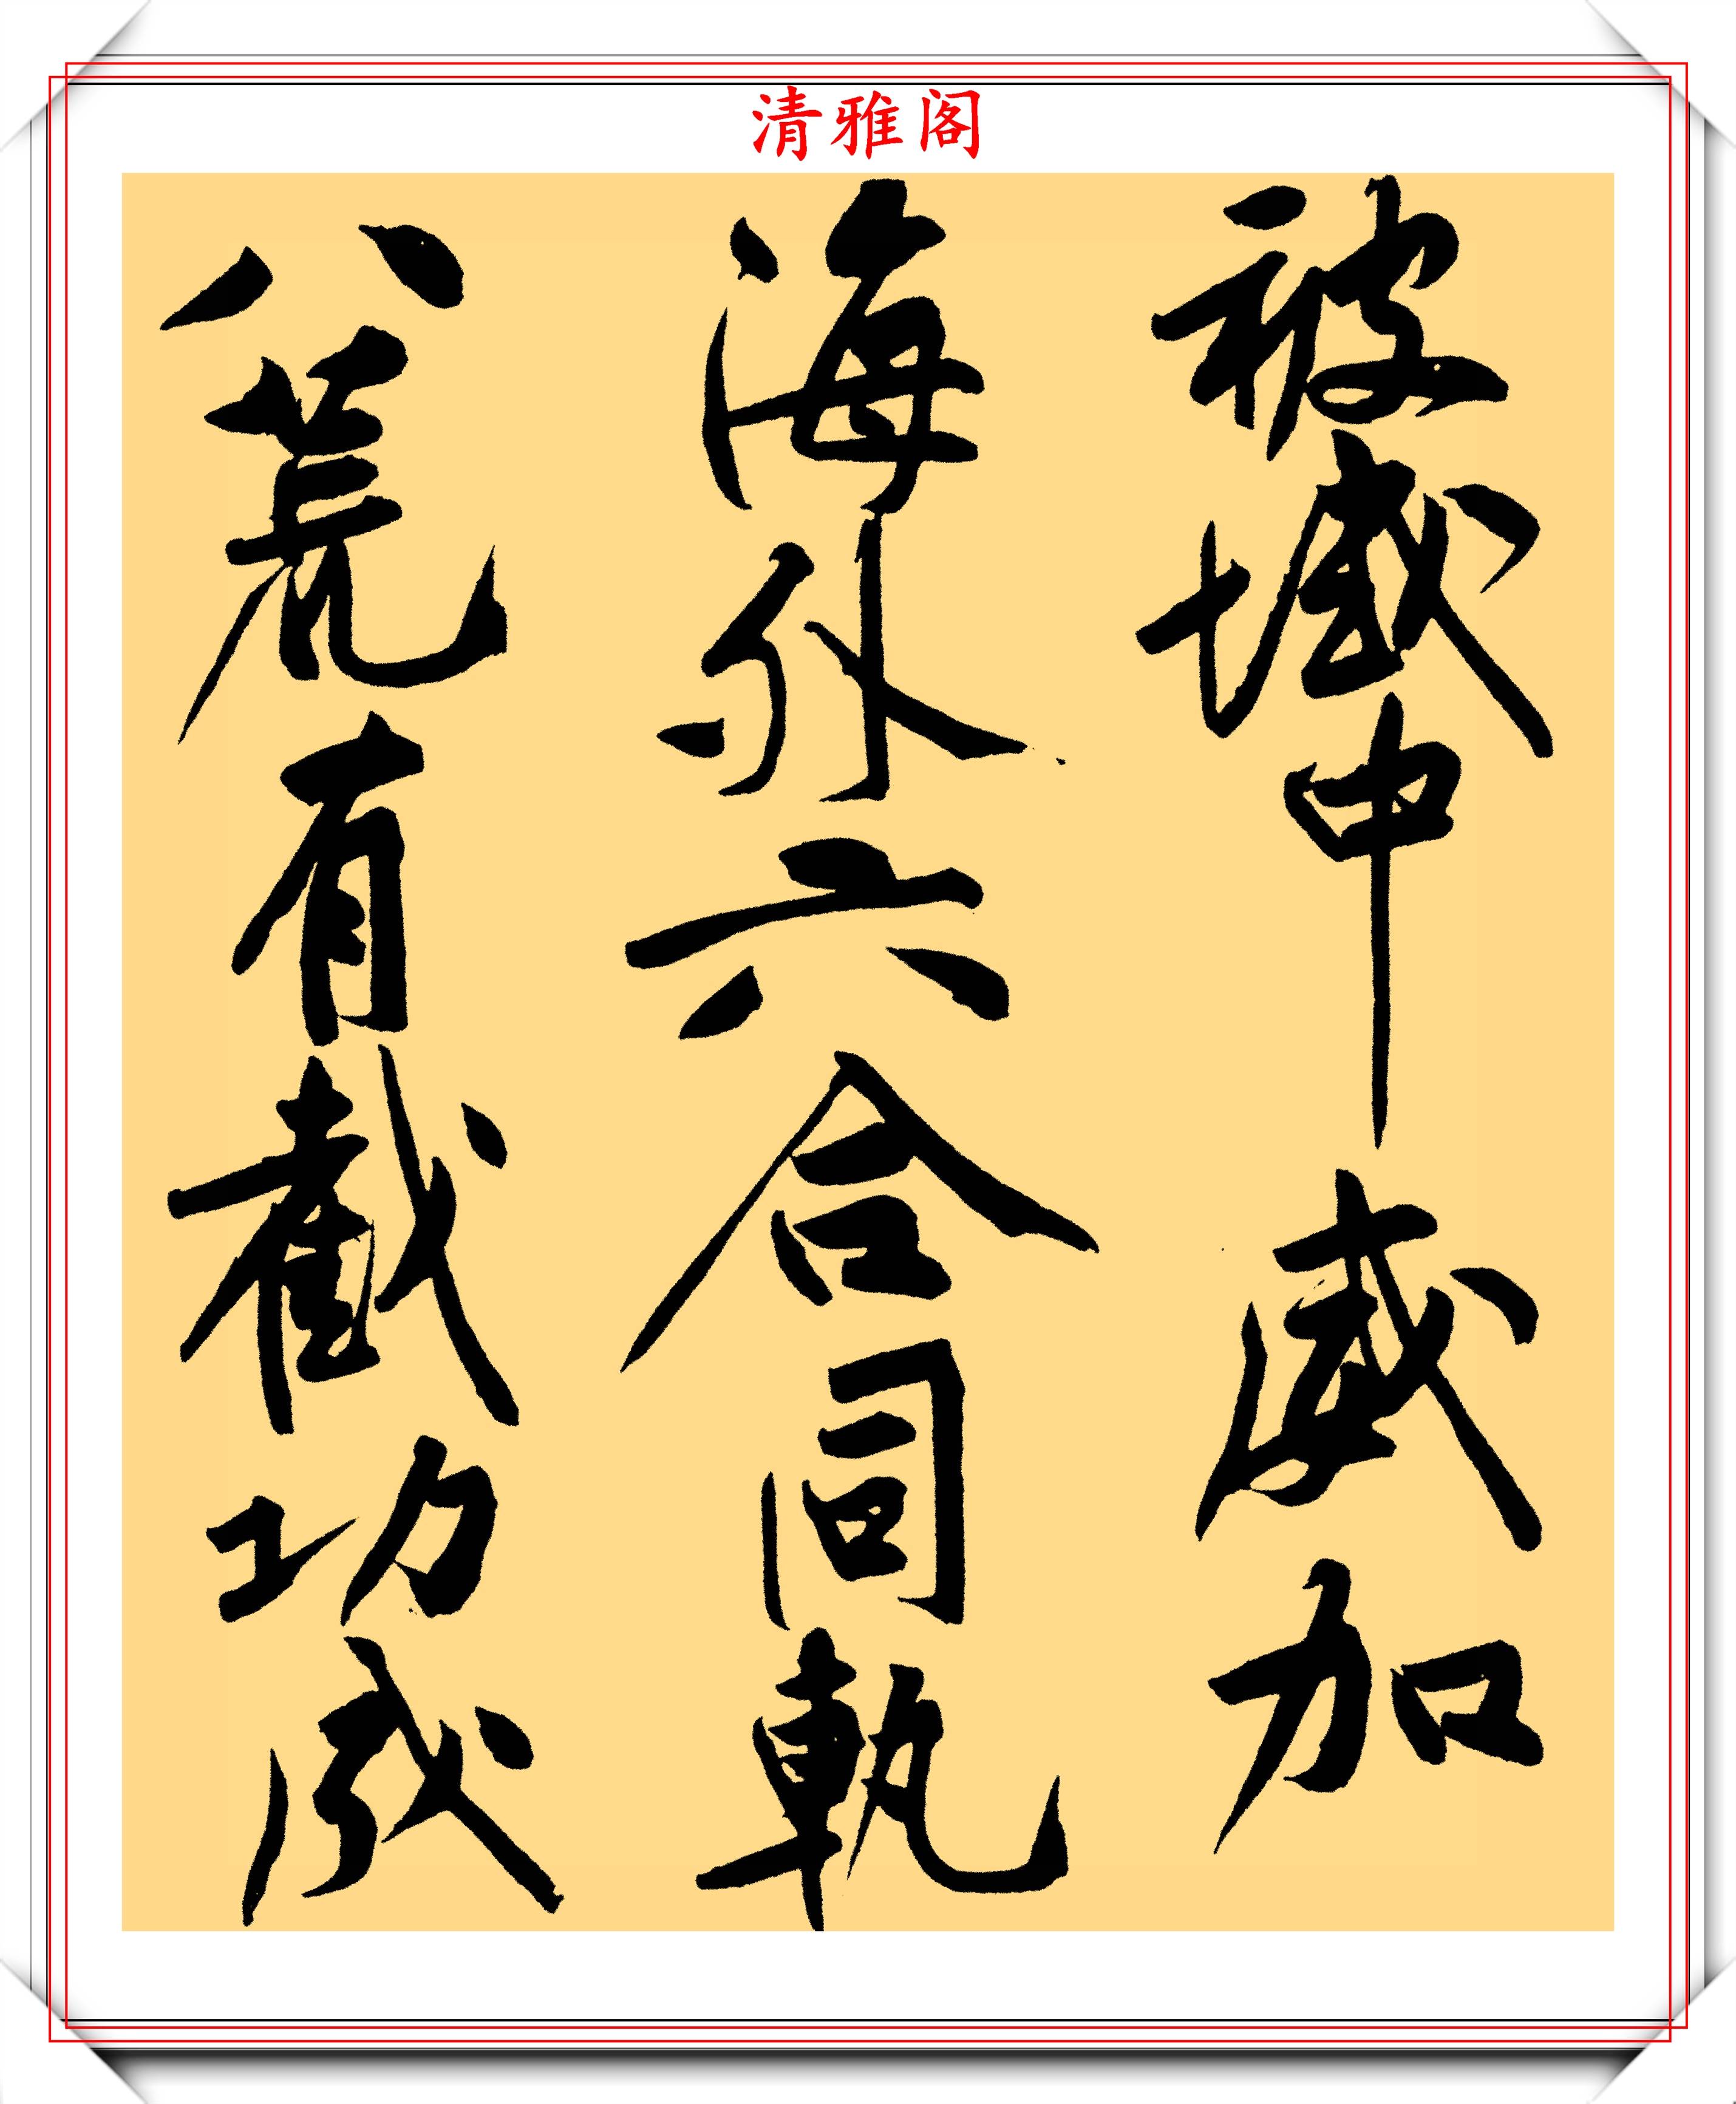 清雅阁
被域中威加
海外六合同軌
八荒有截功成